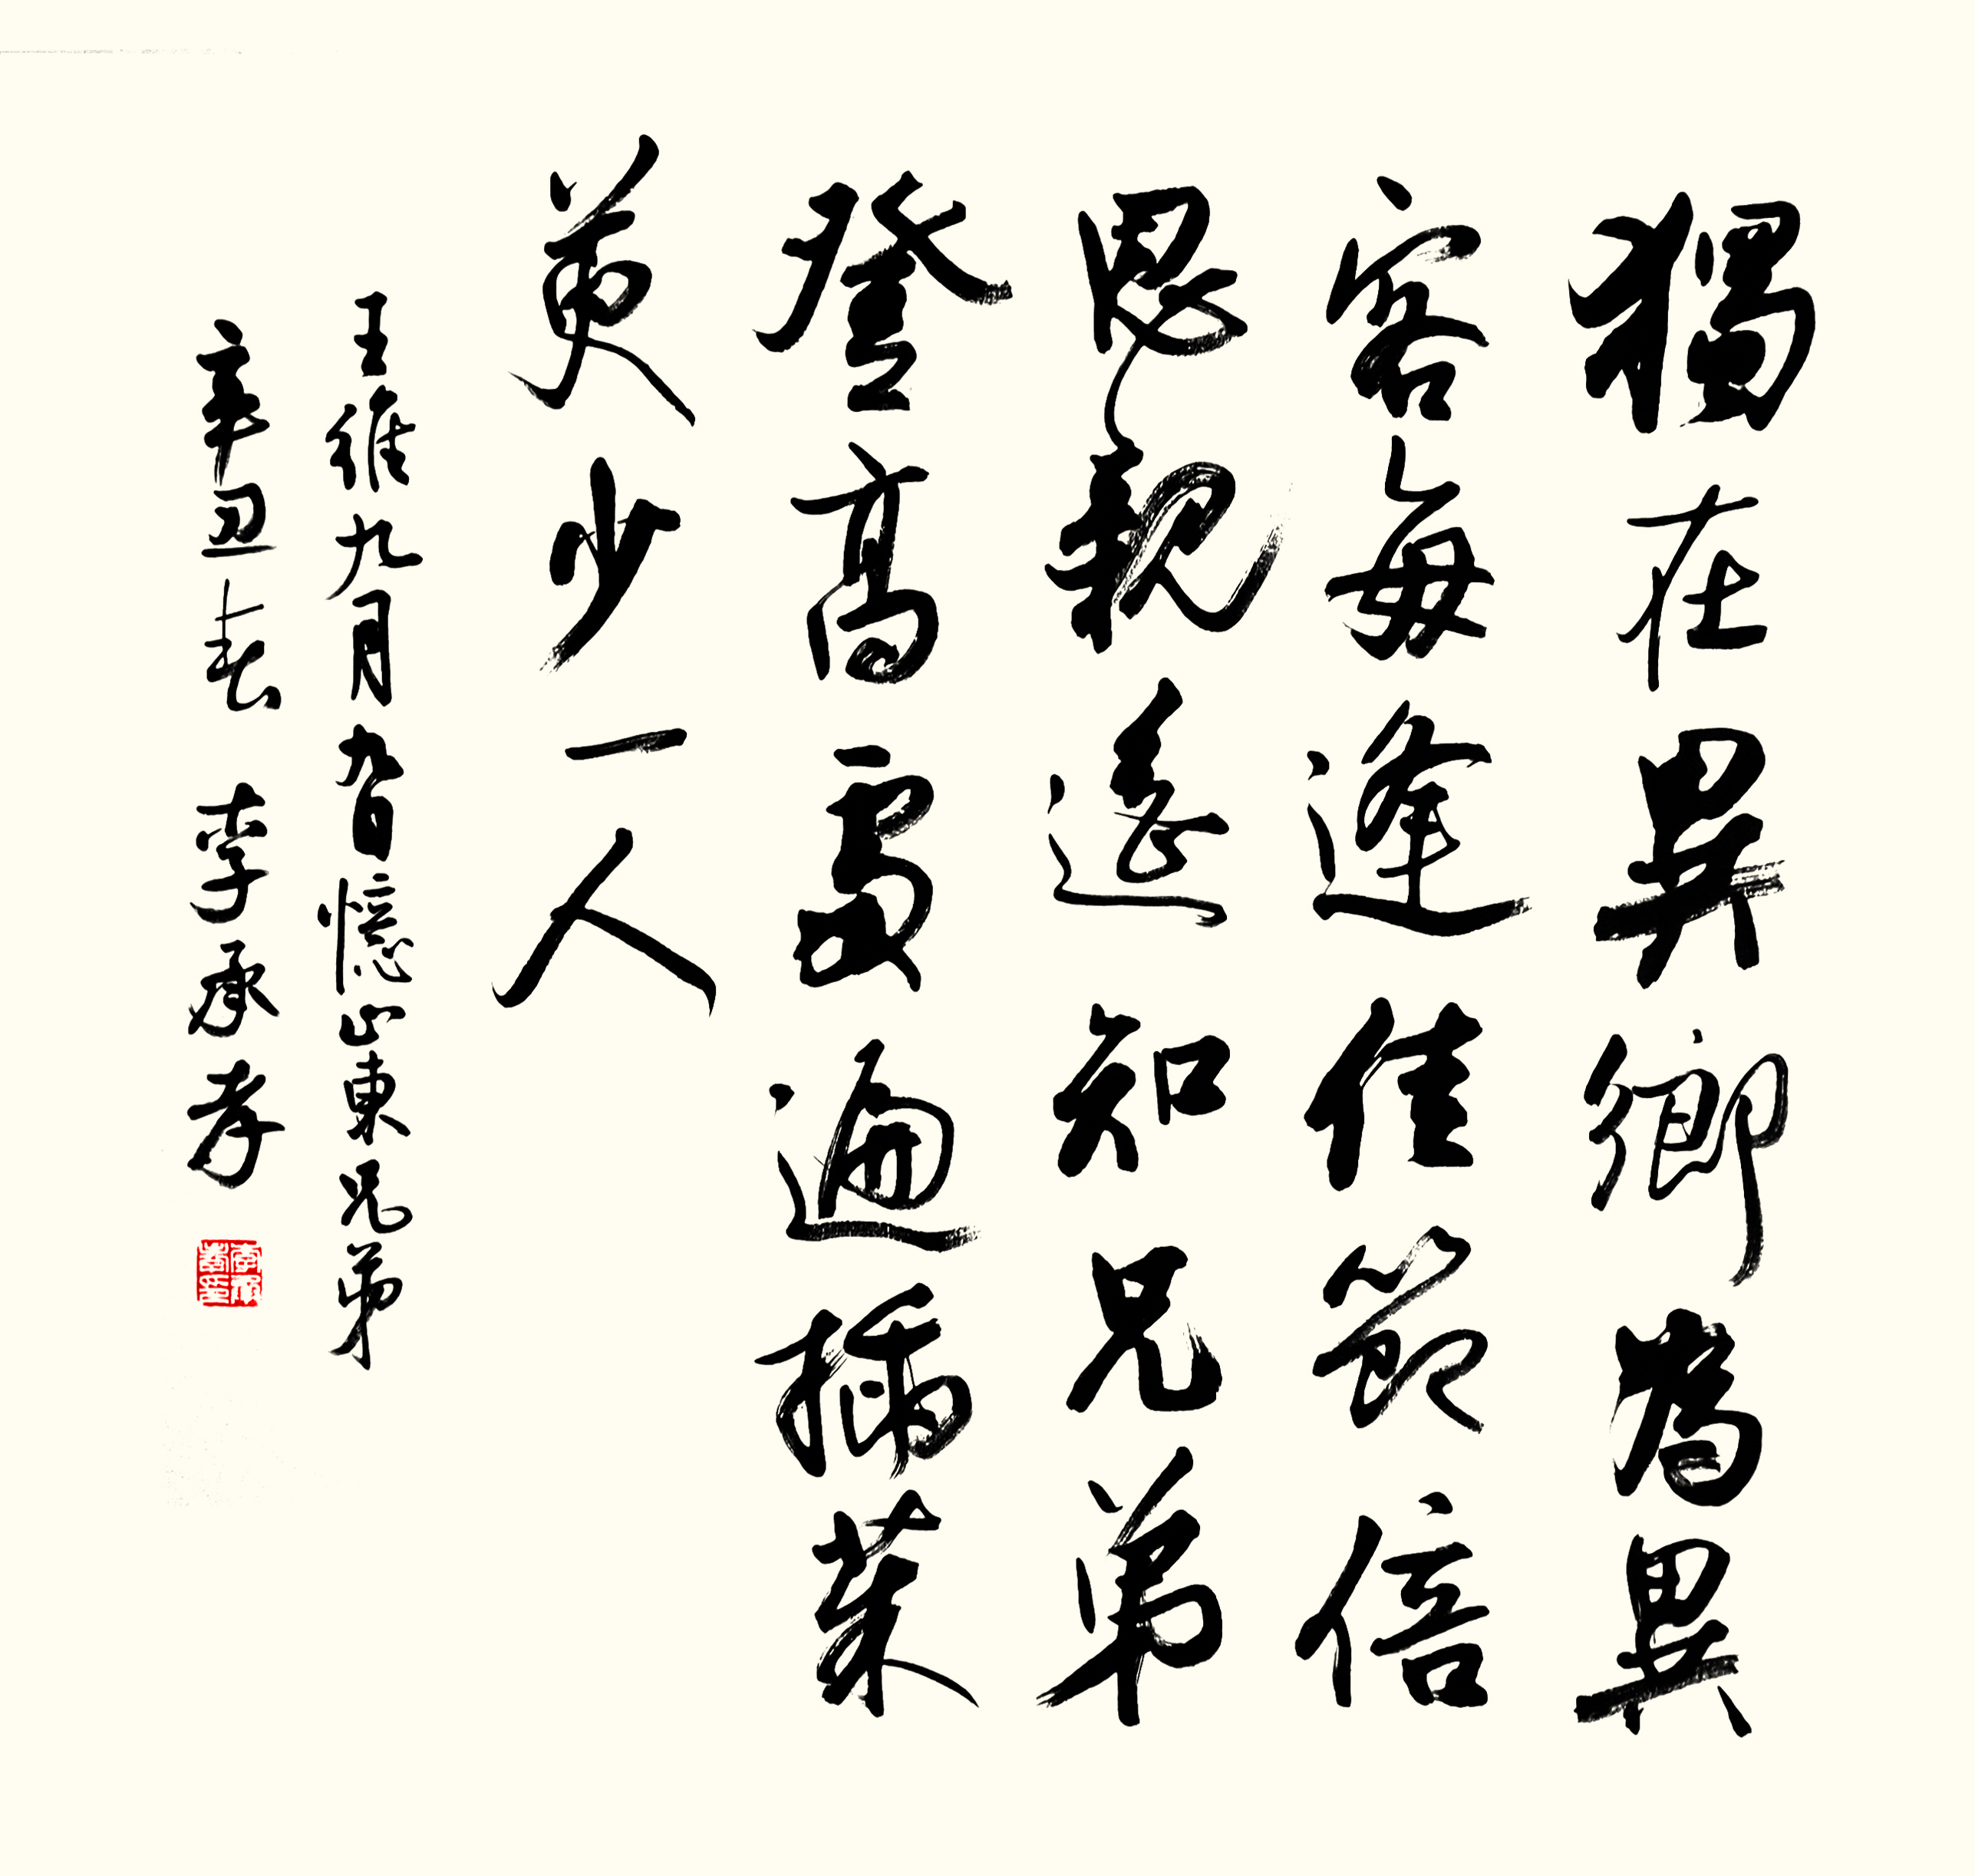 獨在異鄉為異
客每逢佳節倍
思親遙知兄弟
登高處遍插茱
萸少一人
王維九月九日憶山東兄弟
辛丑春 李承孝
李承孝印